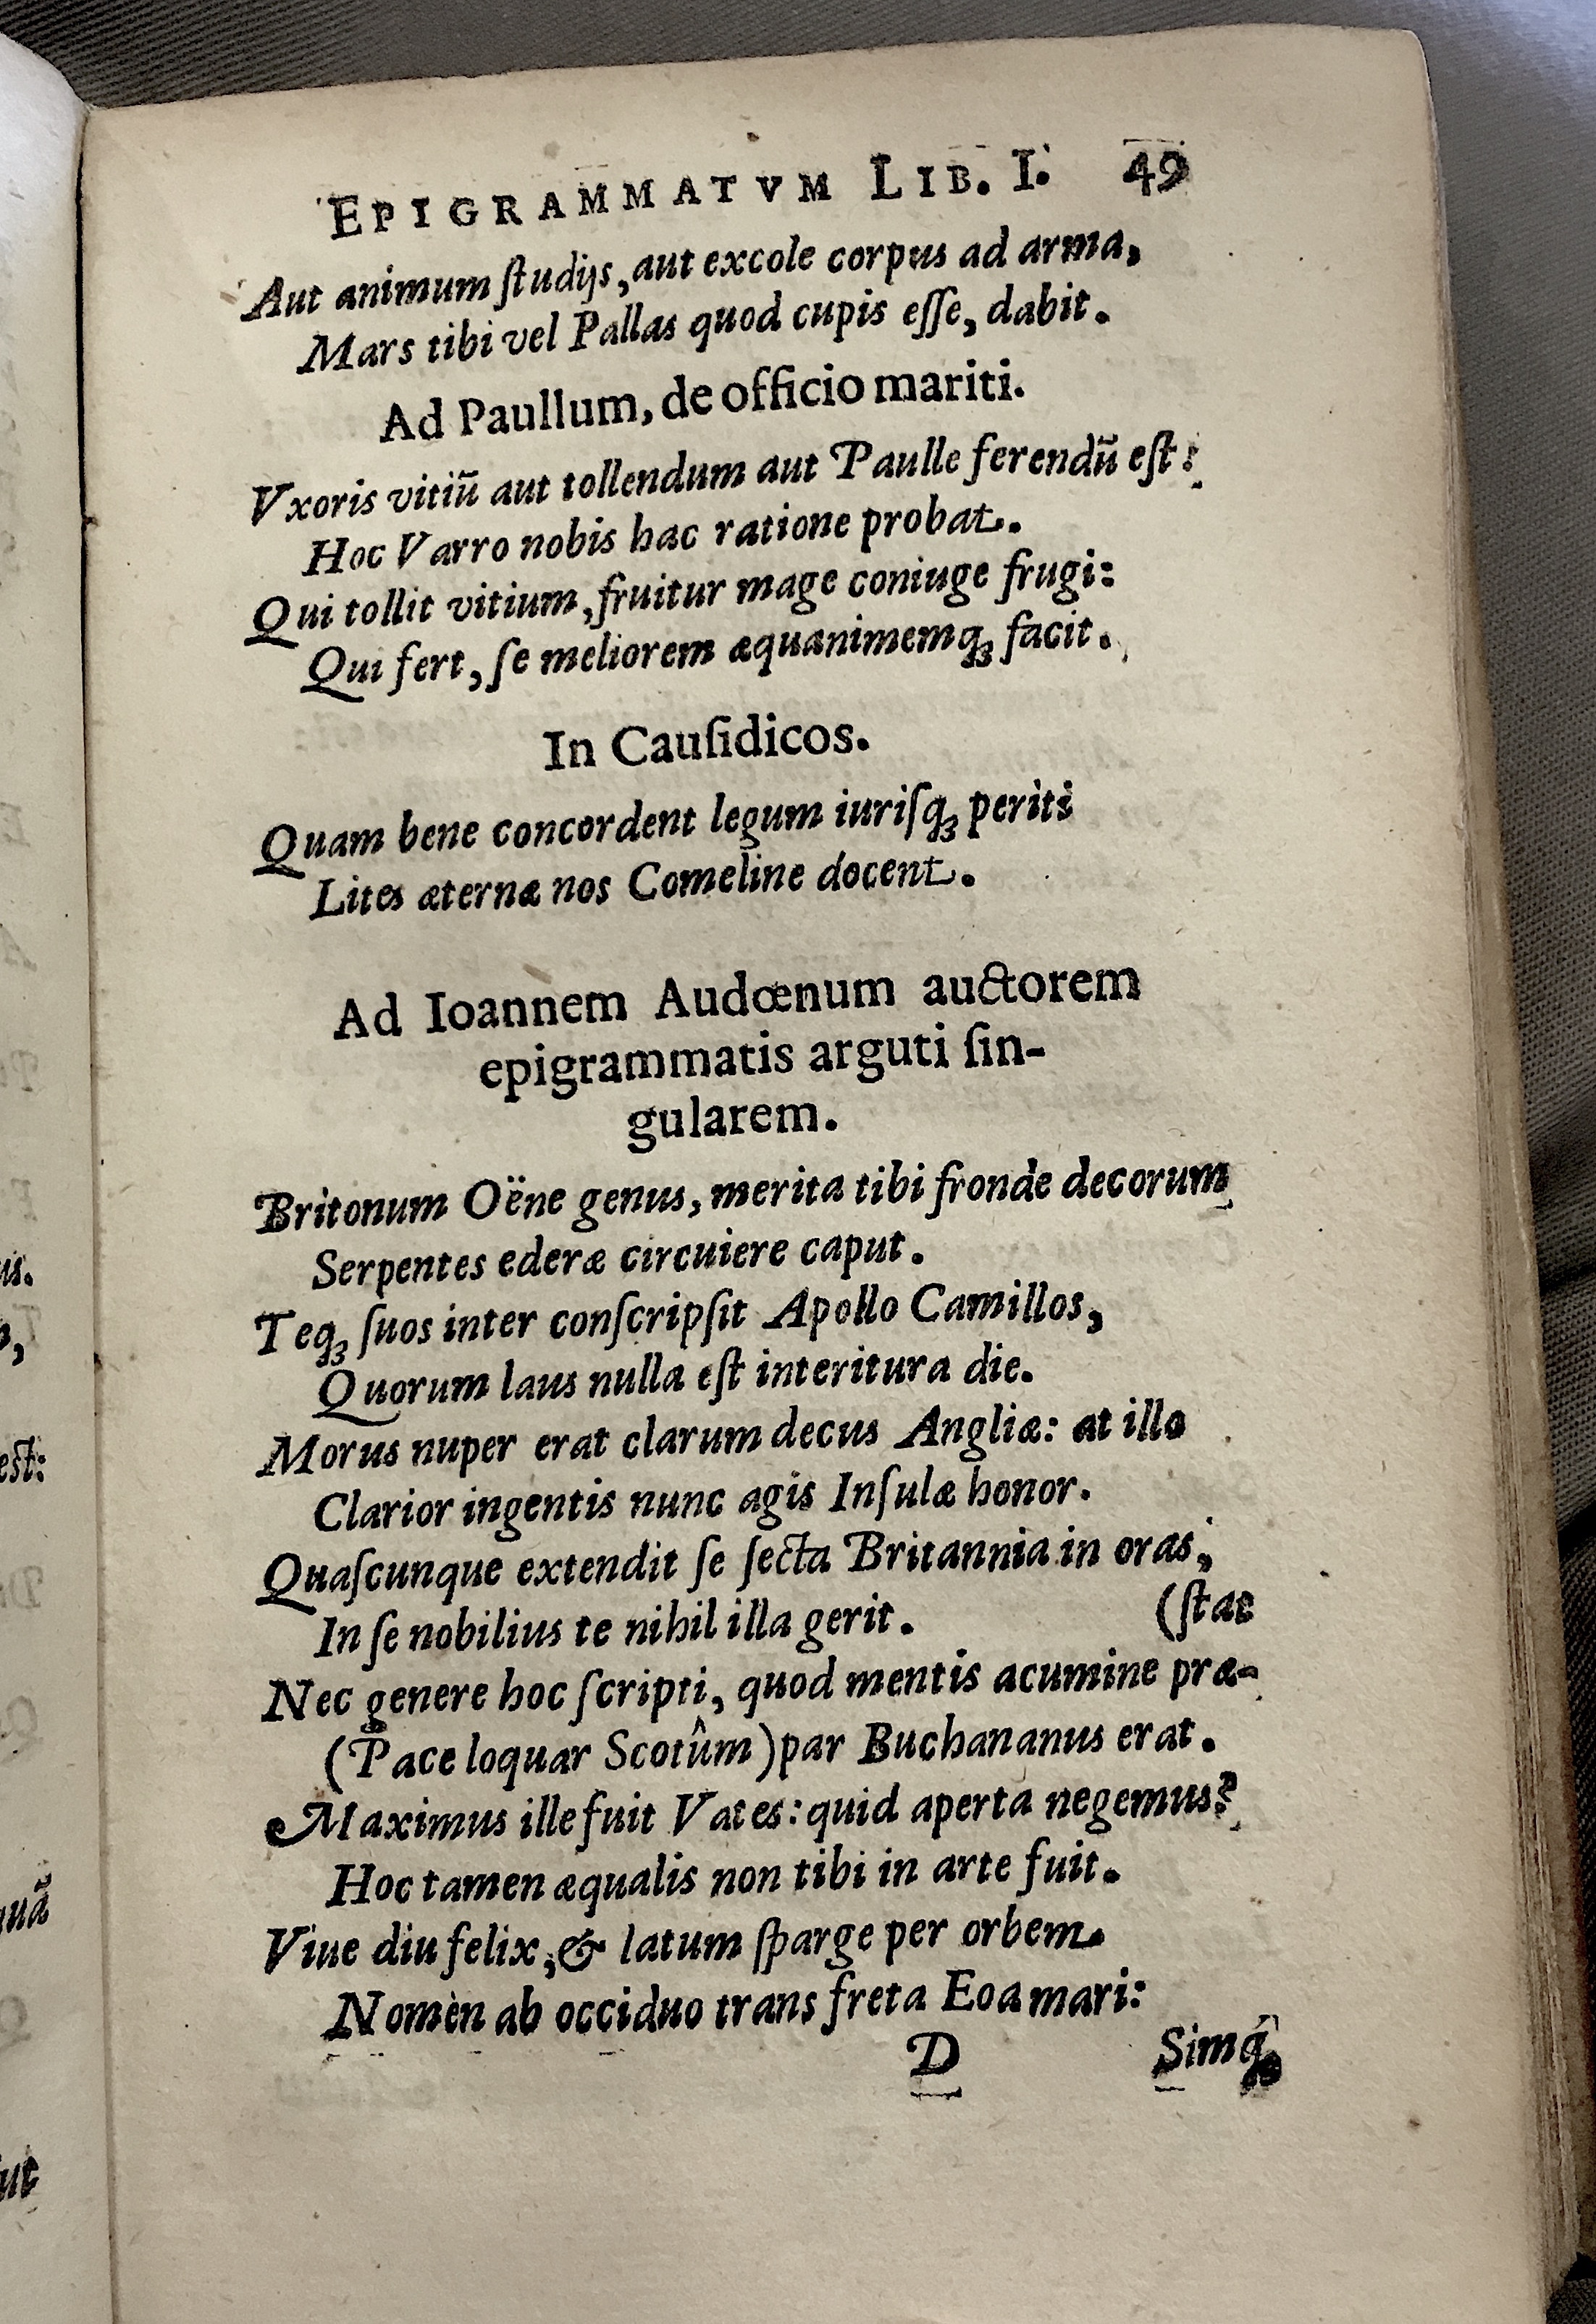 EPIGRAMMATVM LIB. I. 49
Aut animum ſtudijs, aut excole corpus ad arma,
Mars tibi vel Pallas quod cupis eſſe, dabit.
Ad Paullum, de officio mariti.
Vxoris vitiū aut tollendum aut Paulle ferendū eſt:
Hoc Varro nobis hac ratione probat.
Qui tollit vitium, fruitur mage coniuge frugi:
Qui fert, ſe meliorem æquanimemqꝫ facit.
In Cauſidicos.
Quam bene concordent legum iuriſqꝫ periti
Lites æternæ nos Comeline docent.
Ad Ioannem Audœnum auctorem
epigrammatis arguti ſin-
gularem.
Britonum Oëne genus, merita tibi fronde decorum
Serpentes ederæ circuiere caput.
Teqꝫ ſuos inter conſcripſit Apollo Camillos,
Quorum laus nulla eſt interitura die.
Morus nuper erat clarum decus Angliæ: at illo
Clarior ingentis nunc agis Inſulæ honor.
Quaſcunque extendit ſe ſecta Britannia in oras,
In ſe nobilius te nihil illa gerit. (ſtat
Nec genere hoc ſcripti, quod mentis acumine præ-
(Pace loquar Scotûm) par Buchananus erat.
Maximus ille fuit Vates: quid aperta negemus?
Hoc tamen æqualis non tibi in arte fuit.
Viue diu felix, & latum ſparge per orbem
Nomen ab occiduo trans freta Eoa mari:
D Simqꝫ
us.
eſt:
quā
ut